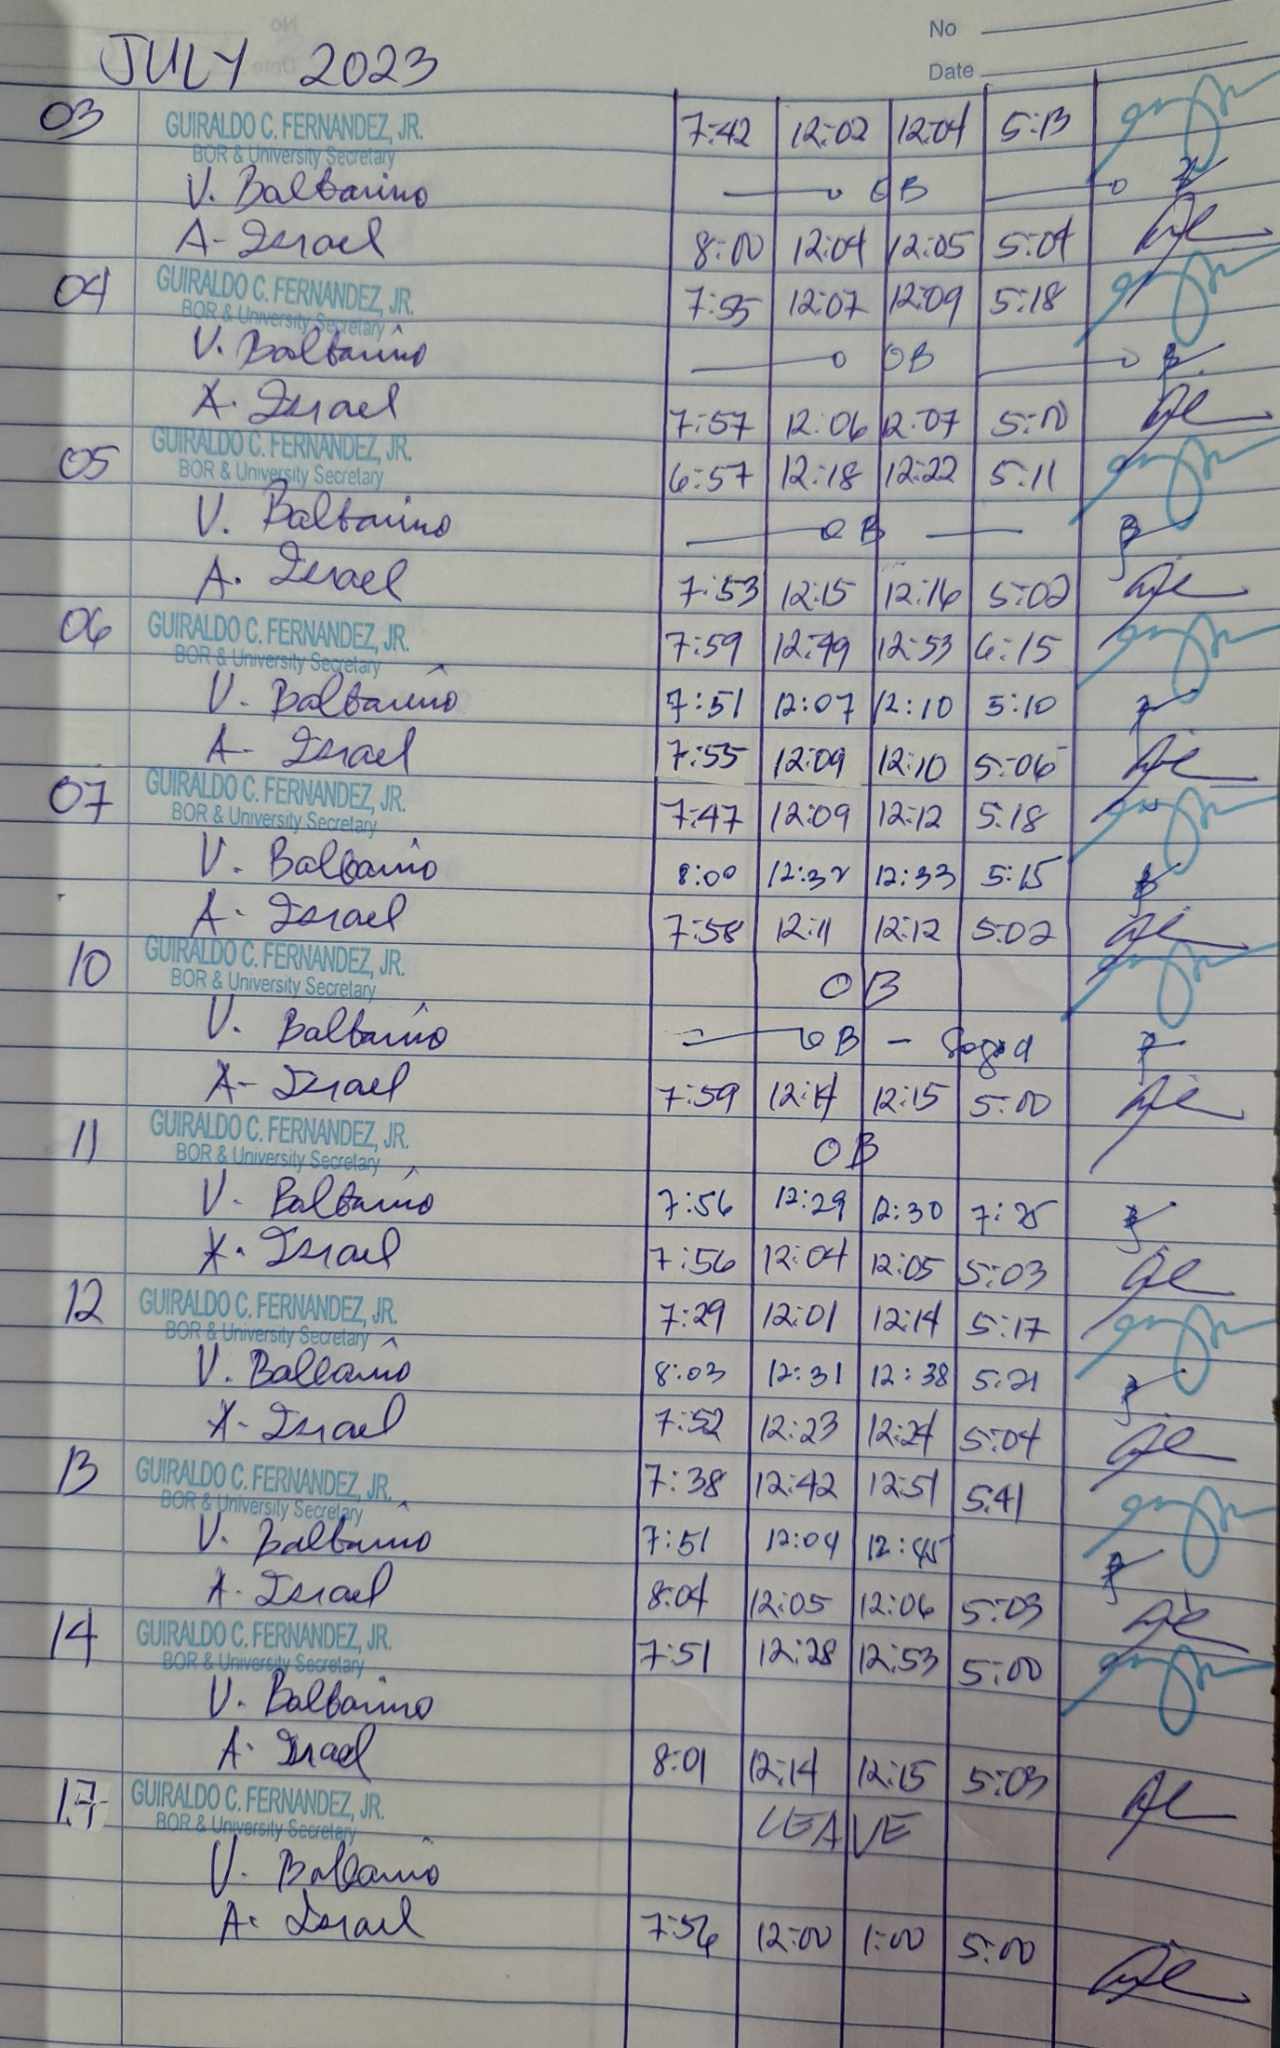 No
Date
JULY 2023
03 GUIRALDO C. FERNANDEZ, JR. 7:42 12:02 12:04 5:13
BOR & University Secretary
V. Balbarino OB
A. Israel 8:00 12:04 12:05 5:04
04 GUIRALDO C. FERNANDEZ, JR. 7:55 12:07 12:09 5:18
BOR & University Secretary
V. Balbarino OB
A. Israel 7:57 12:06 12:07 5:00
05 GUIRALDO C. FERNANDEZ, JR. 6:57 12:18 12:22 5:11
BOR & University Secretary
V. Balbarino OB
A. Israel 7:53 12:15 12:16 5:02
06 GUIRALDO C. FERNANDEZ, JR. 7:59 12:49 12:53 6:15
BOR & University Secretary
V. Balbarino 7:51 12:07 12:10 5:10
A. Israel 7:55 12:09 12:10 5:06
07 GUIRALDO C. FERNANDEZ, JR. 7:47 12:09 12:12 5:18
BOR & University Secretary
V. Balbarino 8:00 12:32 12:33 5:15
A. Israel 7:58 12:11 12:12 5:02
10 GUIRALDO C. FERNANDEZ, JR. OB
BOR & University Secretary
V. Balbarino OB -
A. Israel 7:59 12:14 12:15 5:00
11 GUIRALDO C. FERNANDEZ, JR. OB
BOR & University Secretary
V. Balbarino 7:56 12:29 12:30 7:25
A. Israel 7:56 12:04 12:05 5:03
12 GUIRALDO C. FERNANDEZ, JR. 7:29 12:01 12:14 5:17
BOR & University Secretary
V. Balbarino 8:03 12:31 12:38 5:21
A. Israel 7:52 12:23 12:24 5:04
13 GUIRALDO C. FERNANDEZ, JR. 7:38 12:42 12:51 5:41
BOR & University Secretary
V. Balbarino 7:51 12:04 12:45
A. Israel 8:04 12:05 12:06 5:03
14 GUIRALDO C. FERNANDEZ, JR. 7:51 12:28 12:53 5:00
BOR & University Secretary
V. Balbarino
A. Israel 8:01 12:14 12:15 5:03
17 GUIRALDO C. FERNANDEZ, JR. LEAVE
BOR & University Secretary
V. Balbarino
A. Israel 7:56 12:00 1:00 5:00